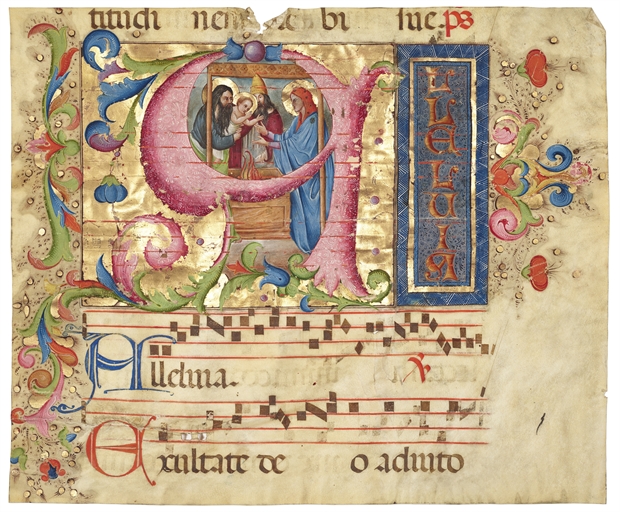 titudi bi sue. ps
A LLELUIA
Alleluia. ℣
Exultate de o adiuto